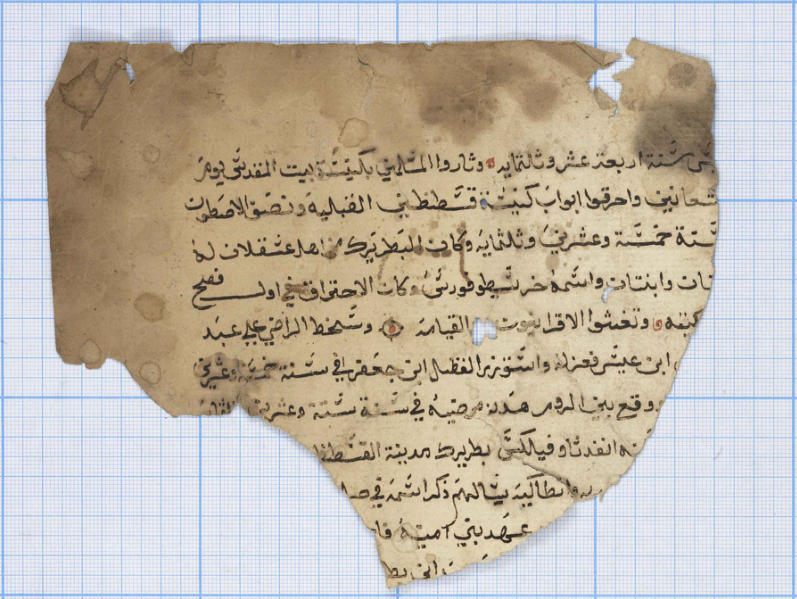 سنة اربعة عشر وثلثمايه وثاروا المسلمين بكنيسة بيت المقدس يوم
شعانين واحرقوا ابواب كنيسة قسطنطين القبليه ونصف الاصطوان
سنة خمسة وعشرين وثلثمايه وكان البطريرك من اهل عسقلان له
وابنتان واسمه خرسطوفورس وكان الاحتراق في اول فصح
كنيفه وتغشوا الاقرانيون القيامة وسخط الراضي على عبد
ابن عيسى فعزله واستوزر الفضل ابن جعفر في سنة خمسة وعشرين
ووقع بين الروم هدنه في سنة ستة وعشرين
انفد ثاوفيلكس بطريرك مدينة
وانطاكية يسالهم ذكر اسمه في
عهد بني امية
الى